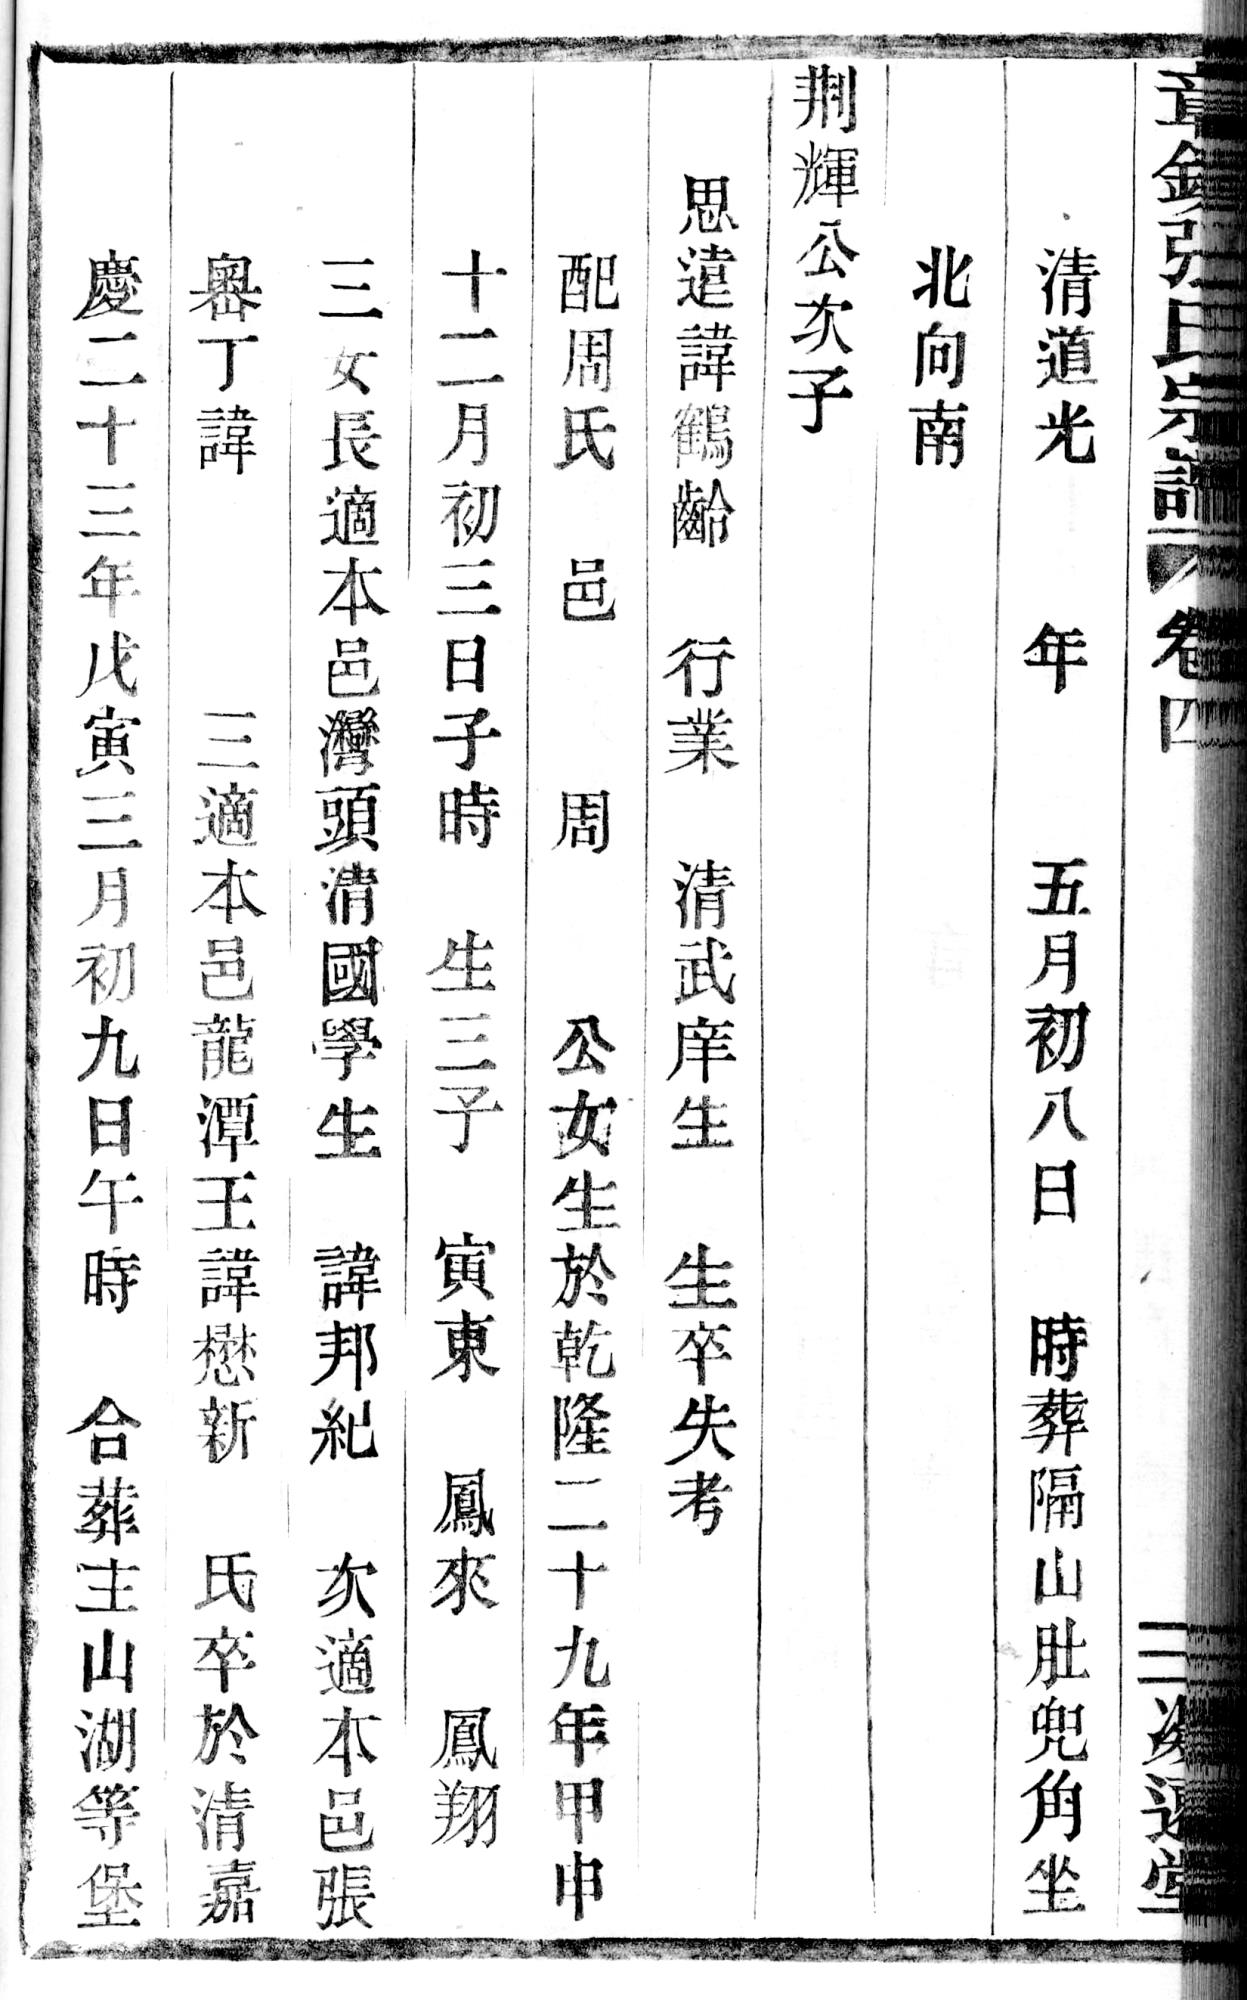 章鎮張氏宗譜 卷四 二 遠堂
清道光 年 五月初八日 時葬隔山肚兜角坐
北向南
荆輝公次子
思遠諱鶴齡 行業 清武庠生 生卒失考
配周氏 邑 周 公女生於乾隆二十九年甲申
十二月初三日子時 生三子 寅東 鳳來 鳳翔
三女長適本邑灣頭清國學生 諱邦紀 次適本邑張
嶴丁諱 三適本邑龍潭王諱懋新 氏卒於清嘉
慶二十三年戊寅三月初九日午時 合葬主山湖等堡